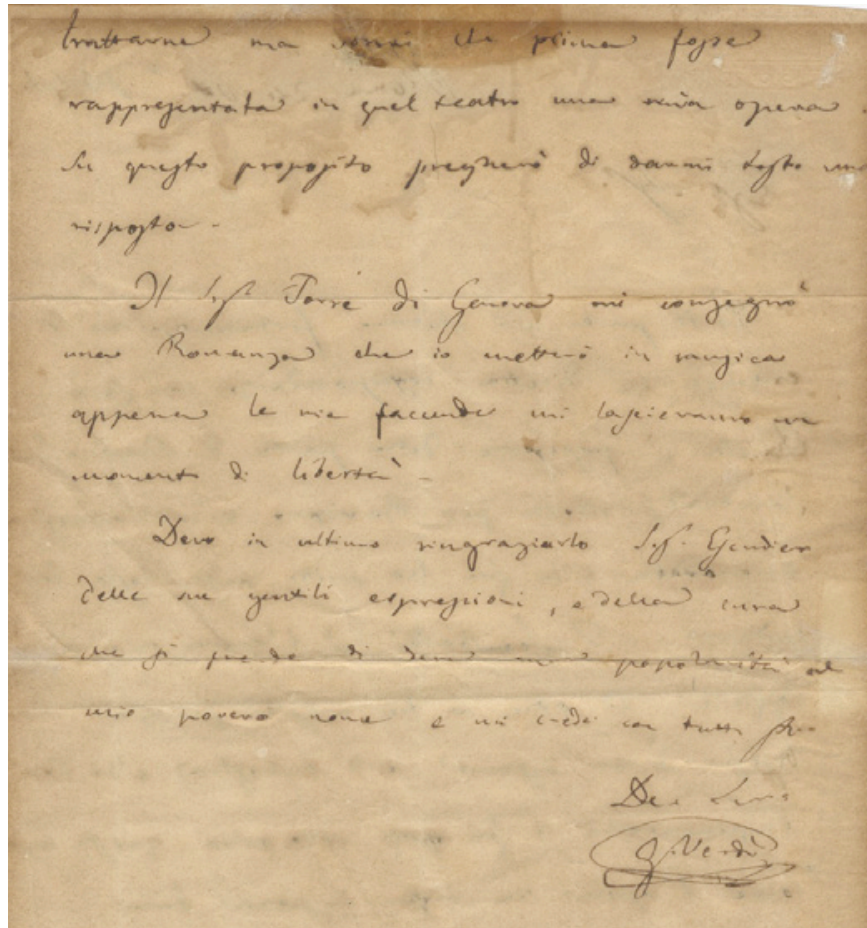 trattarne ma vorrei che prima fosse
rappresentata in quel teatro una mia opera.
Su questo proposito pregherò di darmi tosto una
risposta -
Il Sigr. Torre di Genova mi consegnò
una Romanza che io metterò in musica
appena le mie faccende mi lascieranno un
momento di libertà -
Devo in ultimo ringraziarlo Sigr.
delle sue gentili espressioni, e della cura
che si prende di dare popolarità al
mio povero nome e mi creda con tutta
G. Verdi